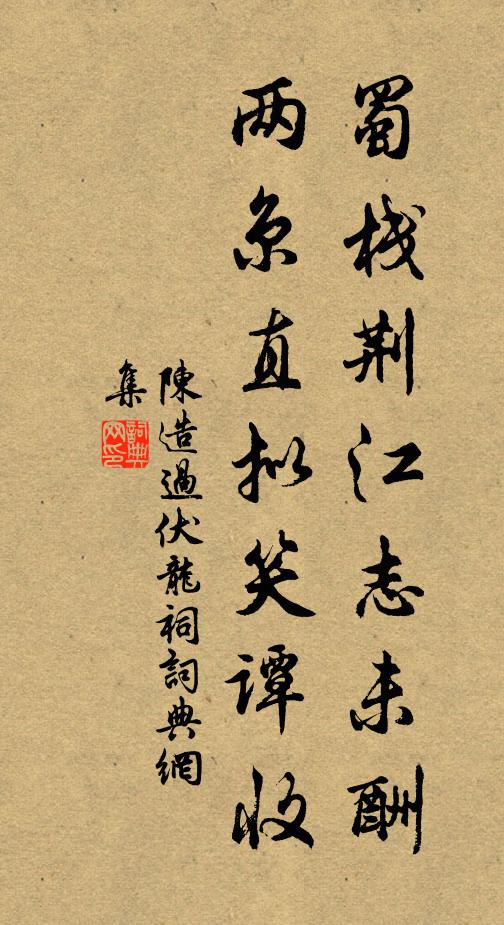 蜀栈荆江志未酬
两京直拟笑谭收
陳造過伏龍祠詞典網
集
詞典
网印